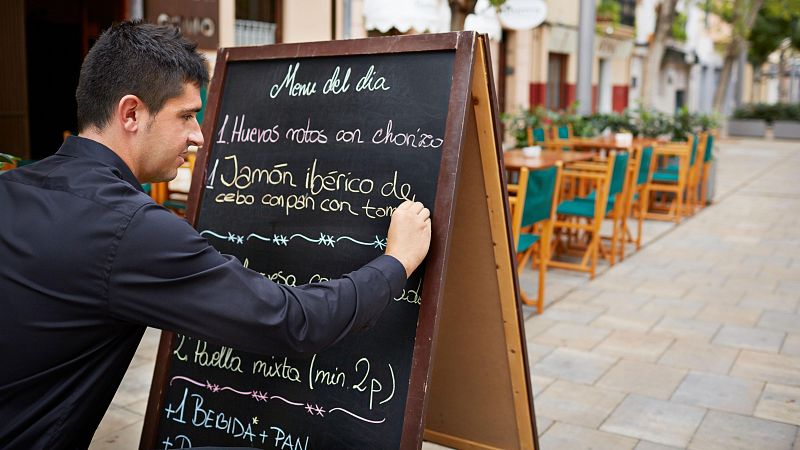 Menu del dia
1. Huevos rotos con chorizo
1 Jamón ibérico de
cebo con pan con tom
2. Paella mixta (min. 2p)
+1 BEBIDA + PAN